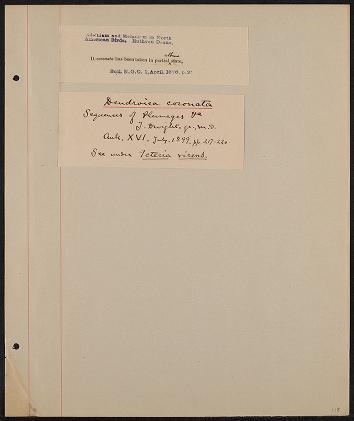 Albinism and Melanism in North
American Birds. Ruthven Deane.
albino
D. coronata has been taken in partial state.
Bull. N.O.C. 1, April, 1876, p.21
Dendroica coronata
Sequences of Plumages &c
J. Dwight, jr., M.D.
Auk, XVI, July, 1899, pp. 217-220
See under Icteria virens.
118